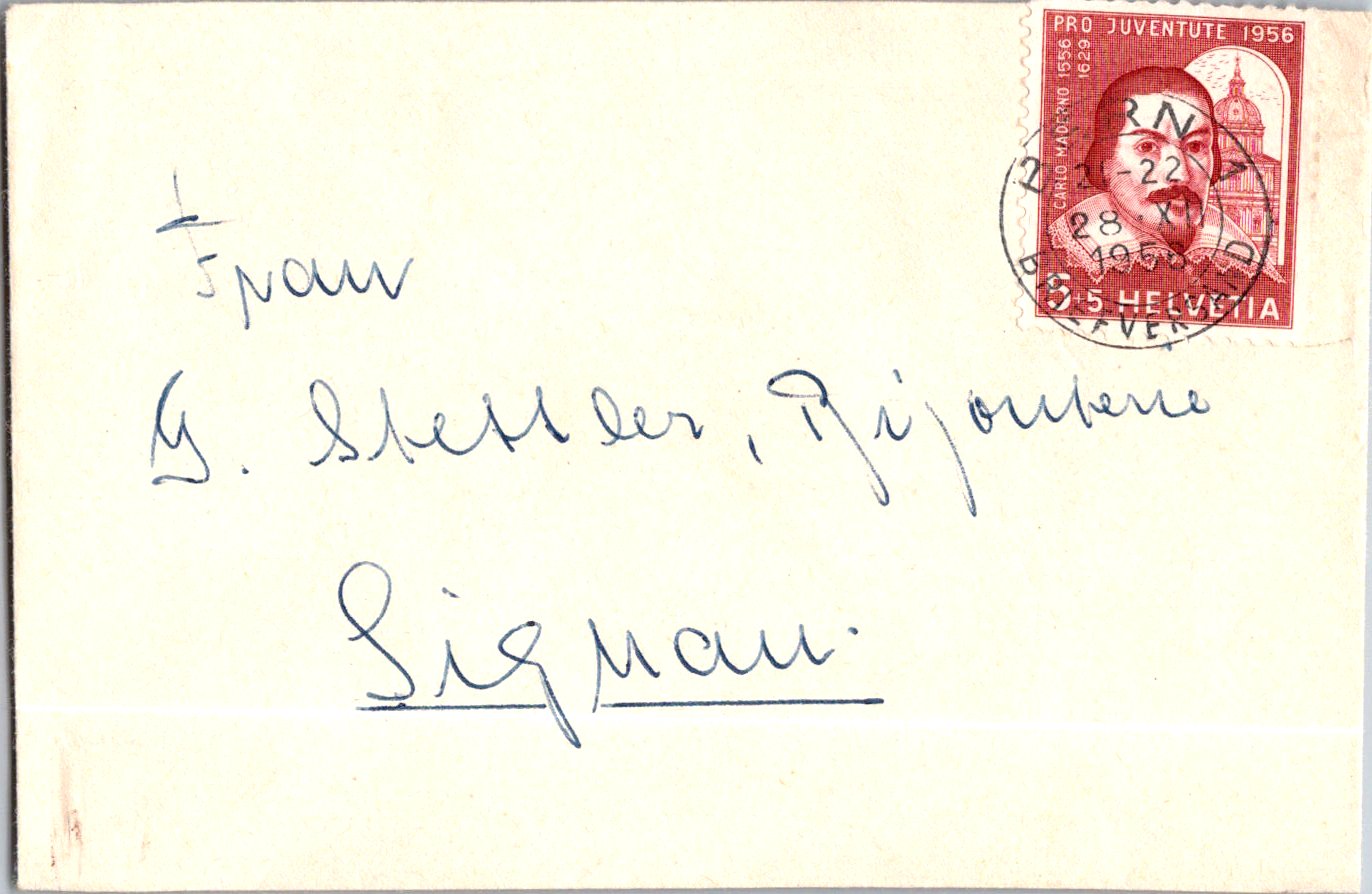 PRO JUVENTUTE 1956
CARLO MADERNO 1556
1629
5+5 HELVETIA
BERN 1
21-22
28.XII
1956
BRIEFVERSAND
Frau
G. Stettler, Bijouterie
Signau.